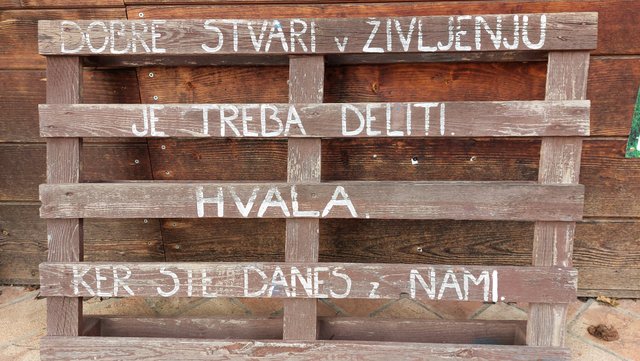 DOBRE STVARI V ŽIVLJENJU
JE TREBA DELITI.
HVALA,
KER STE DANES Z NAMI.